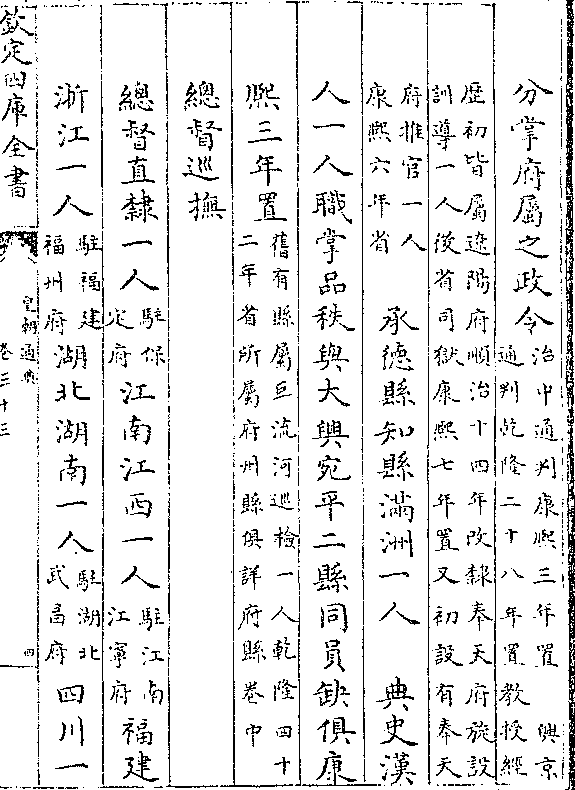 分掌府屬之政令治中通判康熙三年置　興京通判乾隆二十八年置教授經
歴初皆屬遼陽府順治十四年改隸奉天府旋設
訓導一人後省司獄康熙七年置又初設有奉天
府推官一人康熙六年省　承德縣知縣滿洲一人　典史漢
人一人職掌品秩與大興宛平二縣同員缺俱康
熙三年置舊有縣屬巨流河巡檢一人乾隆四十二年省所屬府州縣俱詳府縣卷中
總督巡撫
總督直隸一人駐保定府江南江西一人駐江南江寧府福建
浙江一人駐福建福州府湖北湖南一人駐湖北武昌府四川一
欽定四庫全書
皇朝通典
卷三十三
四